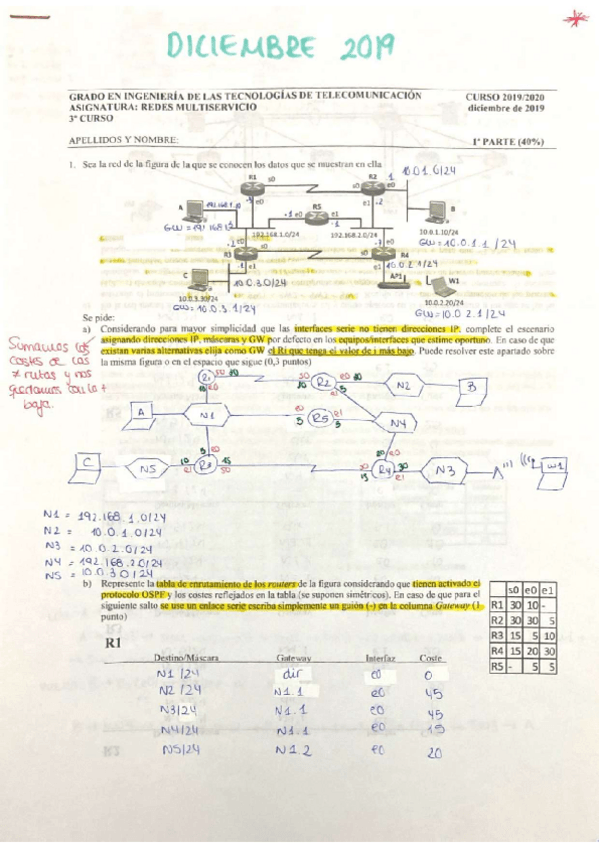 DICIEMBRE 2019
GRADO EN INGENIERÍA DE LAS TECNOLOGÍAS DE TELECOMUNICACIÓN CURSO 2019/2020
ASIGNATURA: REDES MULTISERVICIO diciembre de 2019
3º CURSO
APELLIDOS Y NOMBRE: 1ª PARTE (40%)
1. Sea la red de la figura de la que se conocen los datos que se muestran en ella
10.0.1.0/24
R1 R2
s0 s0
e0 e0
A R5 B
e0 e1 e1
192.168.1.0/24 192.168.2.0/24 10.0.1.10/24
GW = 10.0.1.1 /24
R3 R4
e1 e1 10.0.2.1/24
C 10.0.3.0/24 AP1 W1
10.0.3.30/24 10.0.2.20/24
GW = 10.0.3.1/24 GW = 10.0.2.1/24
Se pide:
a) Considerando para mayor simplicidad que las interfaces serie no tienen direcciones IP, complete el escenario
asignando direcciones IP, máscaras y GW por defecto en los equipos/interfaces que estime oportuno. En caso de que
existan varias alternativas elija como GW el Ri que tenga el valor de i más bajo. Puede resolver este apartado sobre
la misma figura o en el espacio que sigue (0,3 puntos)
Sumamos los
costes de las
≠ rutas y nos
quedamos con la +
baja.
R1 s0 s0 R2 e0 N2 B
A N1 e0 R5 e1 N4
C N5 R3 s0 R4 N3 W1
N1 = 192.168.1.0/24
N2 = 10.0.1.0/24
N3 = 10.0.2.0/24
N4 = 192.168.2.0/24
N5 = 10.0.3.0/24
b) Represente la tabla de enrutamiento de los routers de la figura considerando que tienen activado el
protocolo OSPF y los costes reflejados en la tabla (se suponen simétricos). En caso de que para el
siguiente salto se use un enlace serie escriba simplemente un guión (-) en la columna Gateway (1
punto)
s0 e0 e1
R1 30 10 -
R2 30 30 5
R3 15 5 10
R4 15 20 30
R5 - 5 5
R1
Destino/Máscara Gateway Interfaz Coste
N1 /24 dir e0 0
N2 /24 N1.1 e0 45
N3/24 N1.1 e0 45
N4/24 N1.1 e0 15
N5/24 N1.2 e0 20